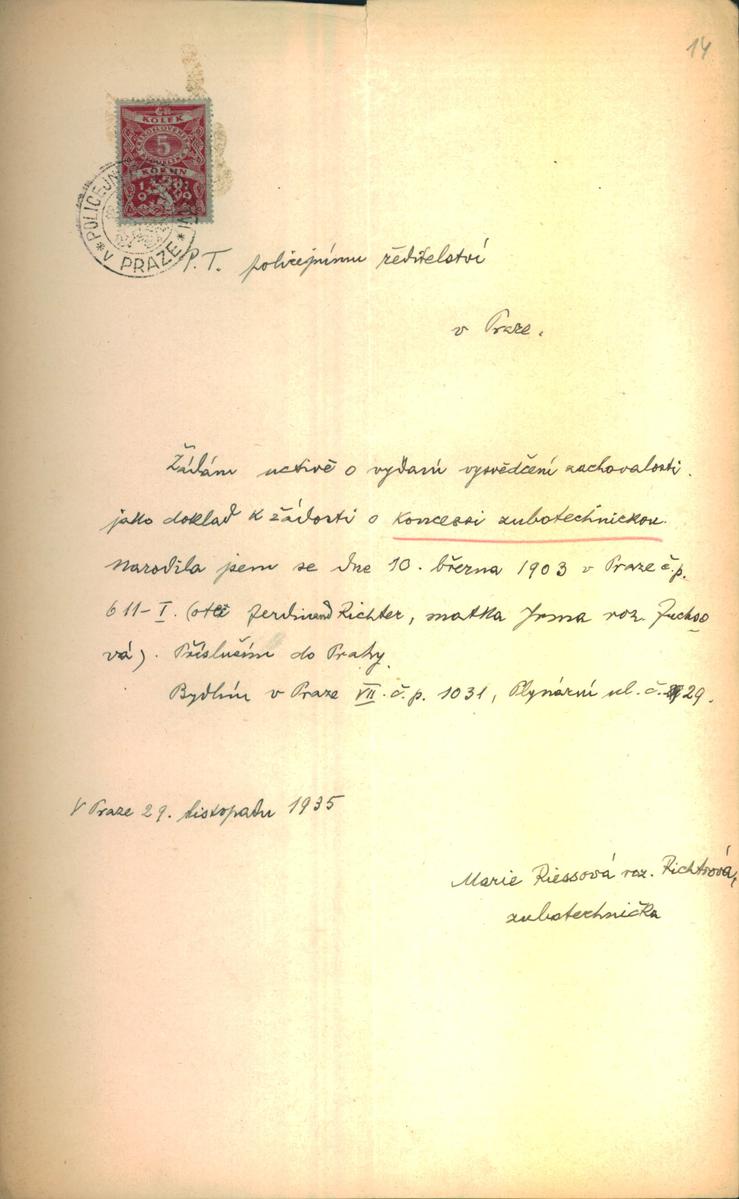 14
ČS
KOLEK
5
KORUN
POLICEJNÍ
V PRAZE
P. T. policejnímu ředitelství
v Praze.
Žádám uctivě o vydání vysvědčení zachovalosti
jako doklad k žádosti o koncessi zubotechnickou.
Narodila jsem se dne 10. března 1903 v Praze č.p.
611-I. (otec Ferdinand Richter, matka Irma roz. Fuchso
vá). Přísluším do Prahy.
Bydlím v Praze VII. č.p. 1031, Plynární ul. č. 29.
V Praze 29. listopadu 1935
Marie Riessová roz. Richtrová,
zubotechnička